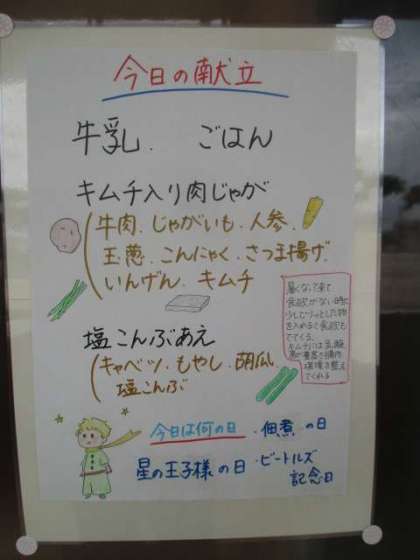 今日の献立
牛乳. ごはん
キムチ入り肉じゃが
牛肉.じゃがいも.人参.
玉葱.こんにゃく.さつま揚げ.
いんげん.キムチ
暑くなって来て
食欲がない時に
少しピリッとした物
を入れると食欲も
でてくる。
キムチには乳酸
菌が豊富で腸内
環境を整え
てくれる
塩こんぶあえ
キャベツ.もやし.胡瓜.
塩こんぶ
今日は何の日.佃煮の日
星の王子様の日.ビートルズ
記念日